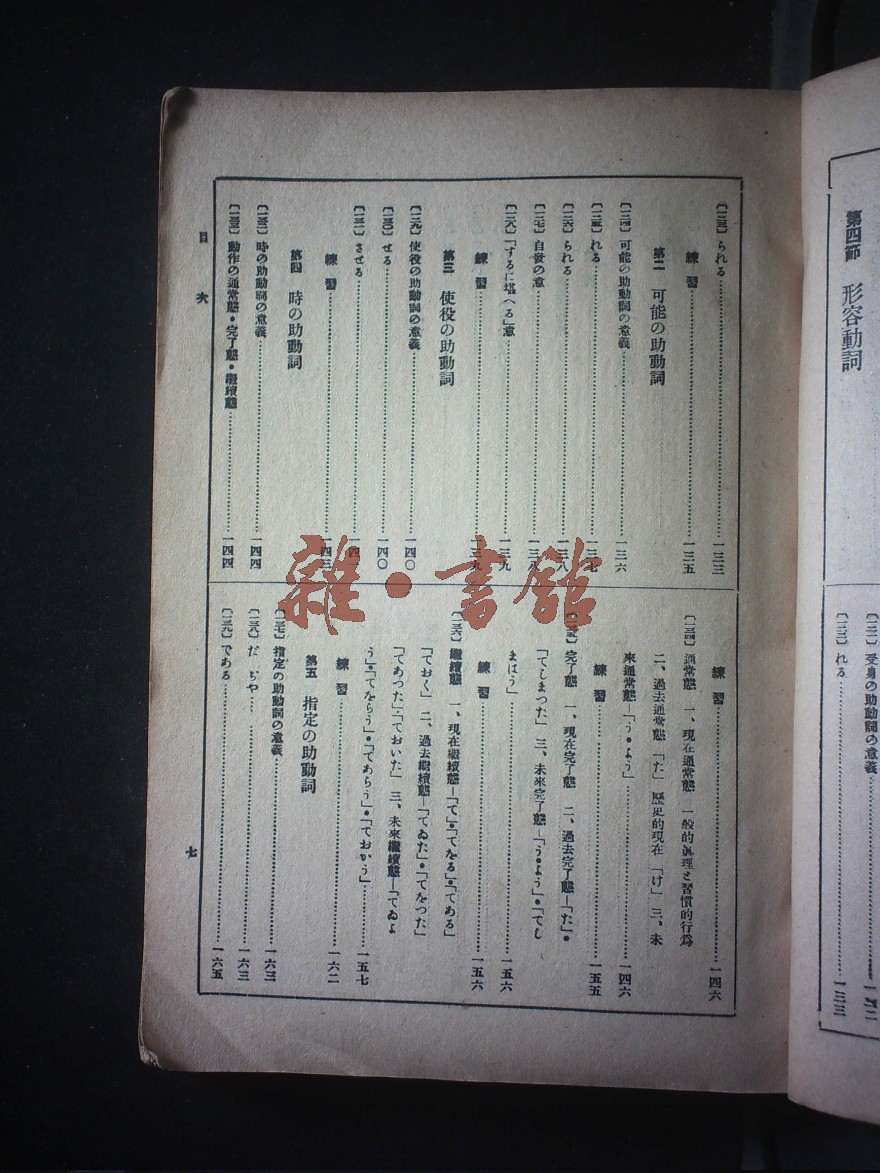 第四節 形容動詞
受身の助動詞の意義
れる 一三三
られる 一三三
練習 一三五
第二 可能の助動詞
〔一三四〕 可能の助動詞の意義 一三六
れる 一三七
〔一三六〕 られる 一三八
〔一三七〕 自發の意 一三八
〔一三八〕 「するに堪へる」意 一三九
練習 一三九
第三 使役の助動詞
使役の助動詞の意義 一四〇
せる 一四〇
させる
練習 一四三
第四 時の助動詞
時の助動詞の意義 一四四
動作の通常態・完了態・繼續態 一四四
練習 一四六
通常態 一、現在通常態 一般的眞理と習慣的行爲
二、過去通常態「た」 歷史的現在「け」 三、未
來通常態―「う・よう」 一四六
練習 一五五
完了態 一、現在完了態 二、過去完了態―「た」・
「てしまつた」 三、未來完了態―「う・よう」・「てし
まはう」 一五六
練習 一五六
繼續態 一、現在繼續態―「て」・「てをる」・「てある」
「ておく」 二、過去繼續態―「てゐた」・「てをつた」
「てあつた」・「ておいた」 三、未來繼續態―「てゐよ
う」・「てをらう」・「てあらう」・「ておかう」 一五七
練習 一六二
第五 指定の助動詞
指定の助動詞の意義 一六三
だ ぢや 一六三
である 一六五
目次
七
雜·書館